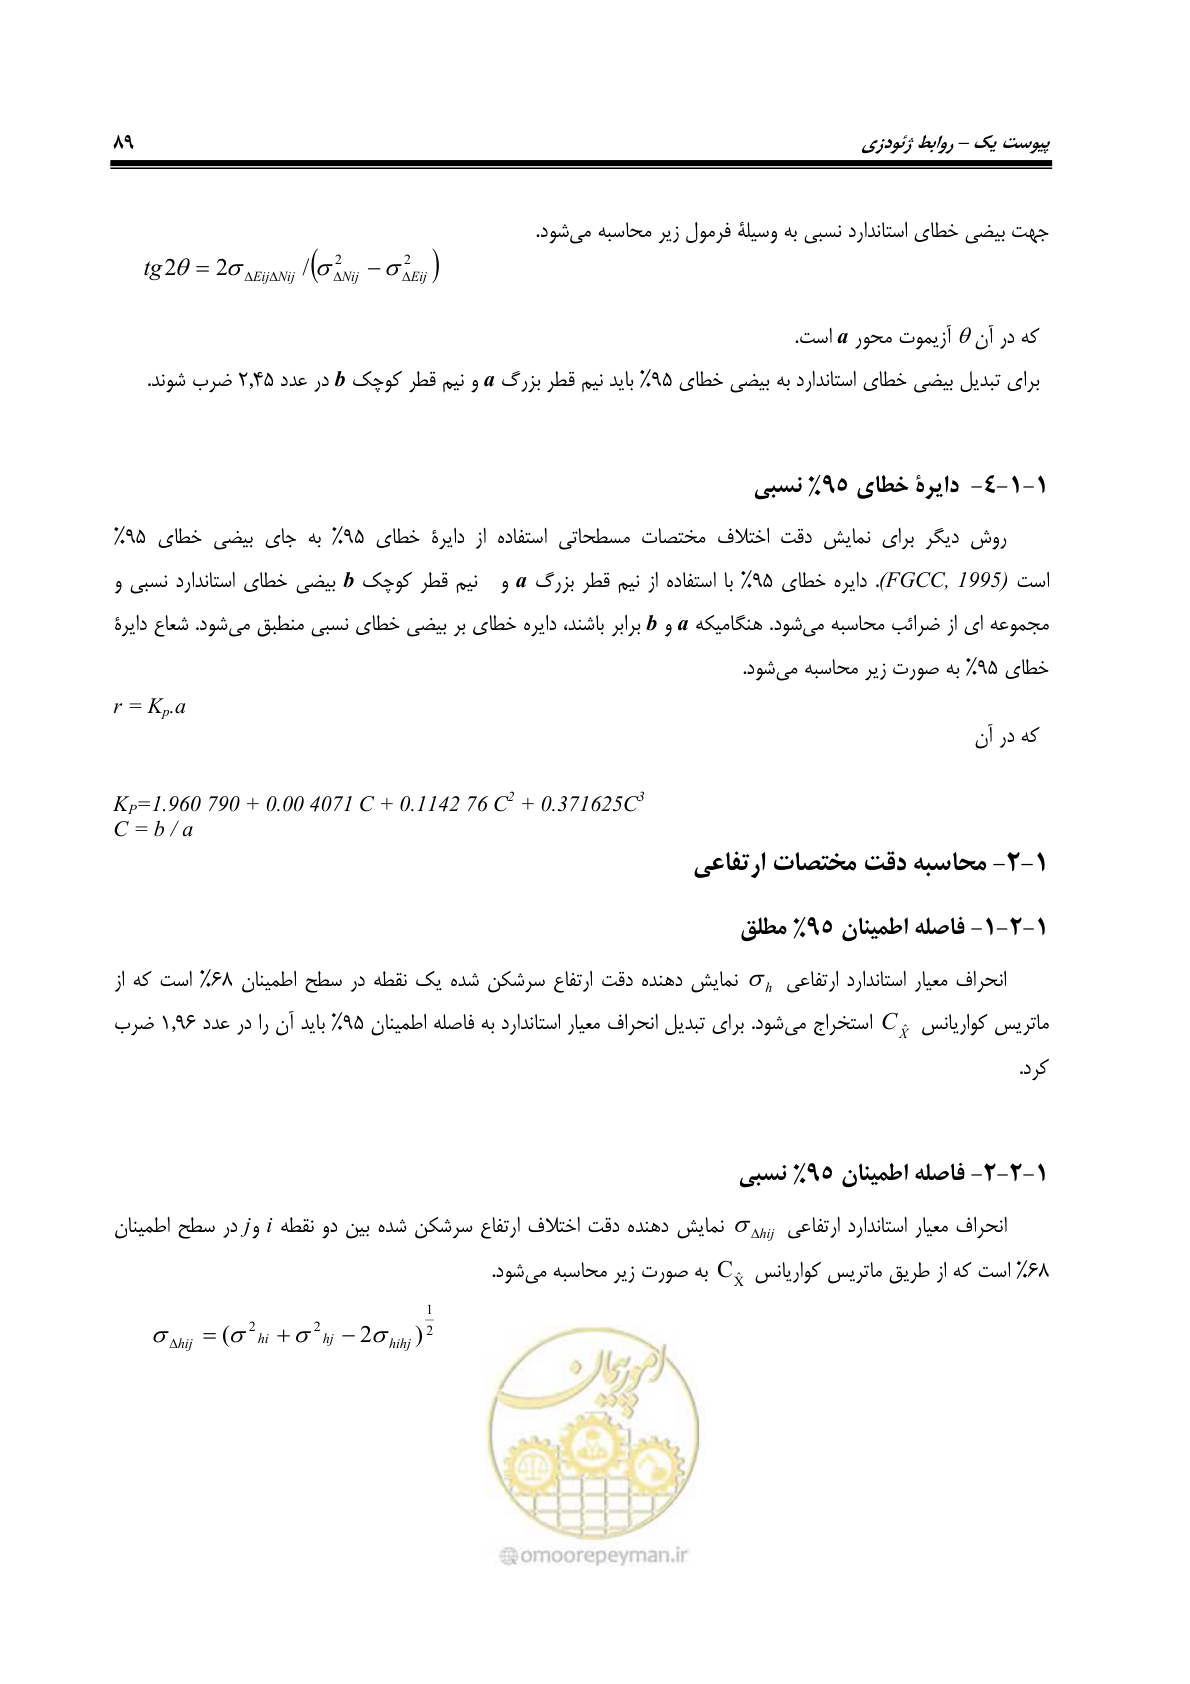 پیوست یک – روابط ژئودزی ۸۹
جهت بیضی خطای استاندارد نسبی به وسیلهٔ فرمول زیر محاسبه می‌شود.
tg2θ = 2σ_{ΔEijΔNij} / (σ²_{ΔNij} − σ²_{ΔEij})
که در آن θ آزیموت محور a است.
برای تبدیل بیضی خطای استاندارد به بیضی خطای ۹۵٪ باید نیم قطر بزرگ a و نیم قطر کوچک b در عدد ۲٫۴۵ ضرب شوند.
۱-۱-٤- دایرهٔ خطای ۹۵٪ نسبی
روش دیگر برای نمایش دقت اختلاف مختصات مسطحاتی استفاده از دایرهٔ خطای ۹۵٪ به جای بیضی خطای ۹۵٪
است (FGCC, 1995). دایره خطای ۹۵٪ با استفاده از نیم قطر بزرگ a و نیم قطر کوچک b بیضی خطای استاندارد نسبی و
مجموعه ای از ضرائب محاسبه می‌شود. هنگامیکه a و b برابر باشند، دایره خطای بر بیضی خطای نسبی منطبق می‌شود. شعاع دایرهٔ
خطای ۹۵٪ به صورت زیر محاسبه می‌شود.
r = K_p.a
که در آن
K_P=1.960 790 + 0.00 4071 C + 0.1142 76 C² + 0.371625C³
C = b / a
۱-۲- محاسبه دقت مختصات ارتفاعی
۱-۲-۱- فاصله اطمینان ۹۵٪ مطلق
انحراف معیار استاندارد ارتفاعی σ_h نمایش دهنده دقت ارتفاع سرشکن شده یک نقطه در سطح اطمینان ۶۸٪ است که از
ماتریس کواریانس C_X̂ استخراج می‌شود. برای تبدیل انحراف معیار استاندارد به فاصله اطمینان ۹۵٪ باید آن را در عدد ۱٫۹۶ ضرب
کرد.
۱-۲-۲- فاصله اطمینان ۹۵٪ نسبی
انحراف معیار استاندارد ارتفاعی σ_{Δhij} نمایش دهنده دقت اختلاف ارتفاع سرشکن شده بین دو نقطه i و j در سطح اطمینان
۶۸٪ است که از طریق ماتریس کواریانس C_X̂ به صورت زیر محاسبه می‌شود.
σ_{Δhij} = (σ²_{hi} + σ²_{hj} − 2σ_{hihj})^{1/2}
امور پیمان
@omoorepeyman.ir